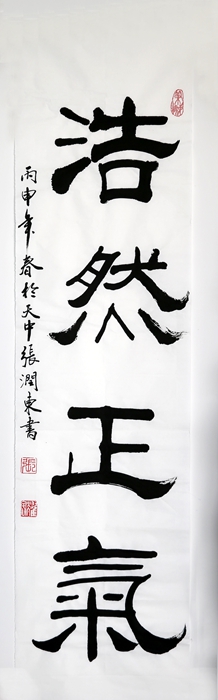 浩然正氣
丙申年春於天中張潤東書